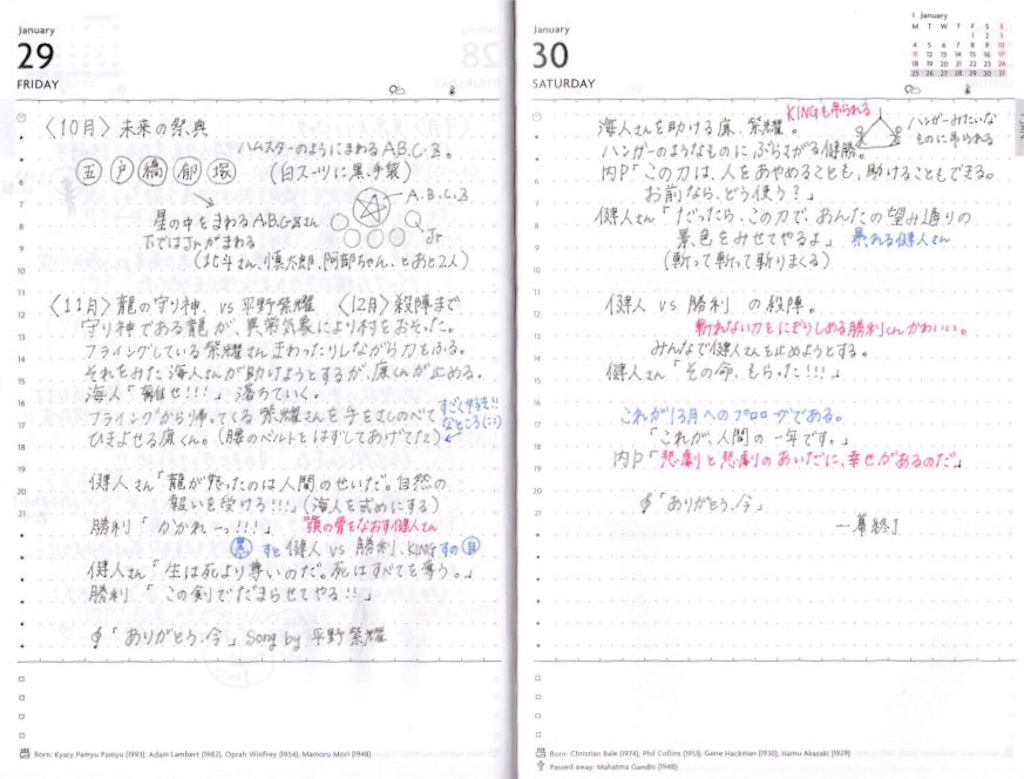 January
29
FRIDAY
〈10月〉未来の祭典
ハムスターのようにまわるA.B.C-Z。
五 戸 橋 郁 塚
(白スーツに黒手袋)
A.B.C-Z
星の中をまわるA.B.C-Zさん
下ではJr.がまわる
Jr
(北斗さん、慎太郎、阿部ちゃん、とあと2人)
〈11月〉龍の守り神 vs 平野紫耀 〈12月〉殺陣まで
守り神である龍が、異常気象により村をおそった。
フライングしている紫耀さん まわったりしながら刀をふる。
それをみた海人さんが助けようとするが、廉くんが止める。
海人「離せ!!!」落ちていく。
フライングから帰ってくる紫耀さんを手をさしのべて
すごくやるき!!
なところ
ひきよせる廉くん。(腰のベルトをはずしてあげてた)
健人さん「龍が怒ったのは人間のせいだ。自然の
報いを受けろ!!!」(海人を責めにする)
勝利「かかれーっ!!!」 顎の骨をなおす健人さん
健人 vs 勝利、KING
健人さん「生は死より尊いのだ。死はすべてを奪う。」
勝利「この剣でだまらせてやる!!」
∮「ありがとう、今」Song by 平野紫耀
Born: Kyary Pamyu Pamyu (1993), Adam Lambert (1982), Oprah Winfrey (1954), Mamoru Mori (1948)
January
30
SATURDAY
1 January
M T W T F S S
1 2 3
4 5 6 7 8 9 10
11 12 13 14 15 16 17
18 19 20 21 22 23 24
25 26 27 28 29 30 31
KINGも吊られる
海人さんを助ける廉、紫耀。
ハンガーみたいな
ものに吊られる
ハンガーのようなものにぶらさがる健勝。
内P「この刀は、人をあやめることも、助けることもできる。
お前なら、どう使う?」
健人さん「だったら、この刀で、あんたの望み通りの
景色をみせてやるよ」 暴れる健人さん
(斬って斬って斬りまくる)
健人 vs 勝利 の殺陣。
斬れない刀をにぎりしめる勝利くんかわいい。
みんなで健人さんを止めようとする。
健人さん「その命、もらった!!!」
これが13月へのプロローグである。
「これが、人間の一年です。」
内P「悲劇と悲劇のあいだに、幸せがあるのだ」
∮「ありがとう、今」
一幕終了
Born: Christian Bale (1974), Phil Collins (1951), Gene Hackman (1930), Isamu Akasaki (1929)
Passed away: Mahatma Gandhi (1948)